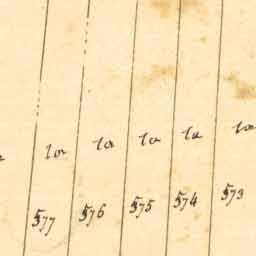 1a 1a 1a 1a 1a
577 576 575 574 573